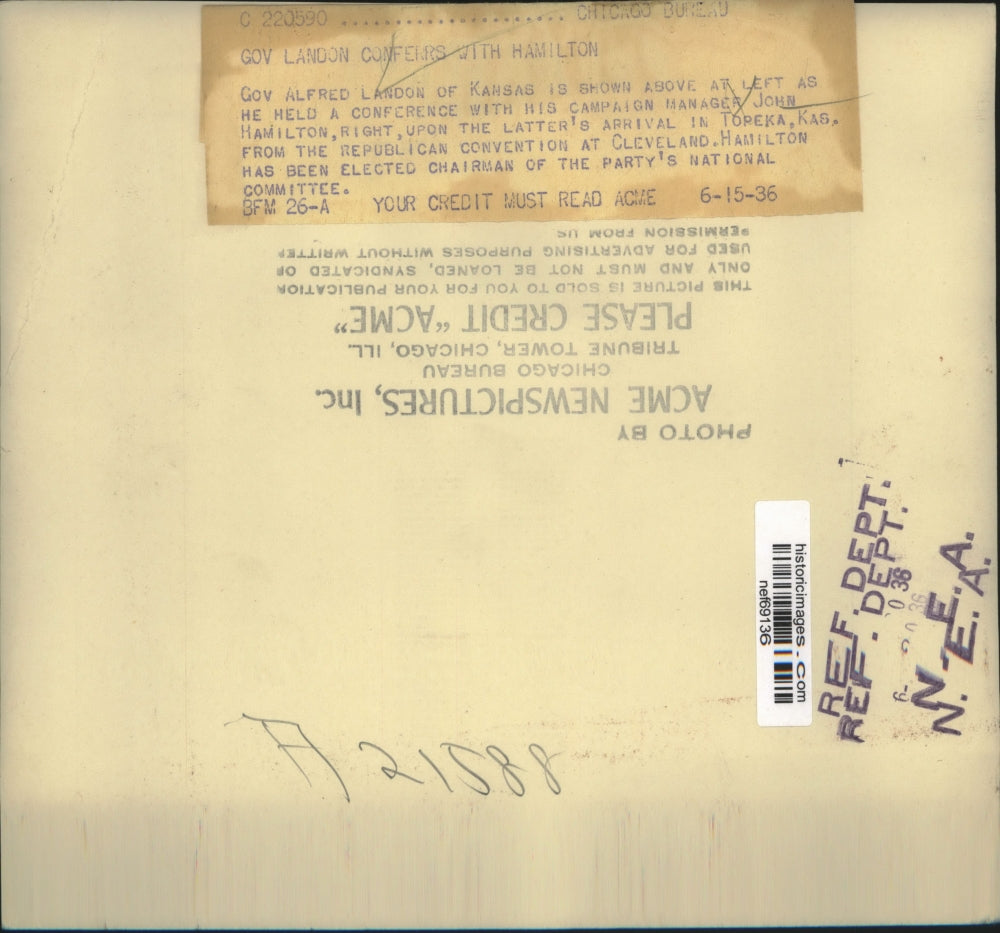 C 220590 ...................... CHICAGO BUREAU
GOV LANDON CONFERRS WITH HAMILTON
GOV ALFRED LANDON OF KANSAS IS SHOWN ABOVE AT LEFT AS
HE HELD A CONFERENCE WITH HIS CAMPAIGN MANAGER JOHN
HAMILTON,RIGHT,UPON THE LATTER'S ARRIVAL IN TOPEKA,KAS.
FROM THE REPUBLICAN CONVENTION AT CLEVELAND.HAMILTON
HAS BEEN ELECTED CHAIRMAN OF THE PARTY'S NATIONAL
COMMITTEE.
BFM 26-A YOUR CREDIT MUST READ ACME 6-15-36
PHOTO BY
ACME NEWSPICTURES, Inc.
CHICAGO BUREAU
TRIBUNE TOWER, CHICAGO, ILL.
PLEASE CREDIT "ACME"
THIS PICTURE IS SOLD TO YOU FOR YOUR PUBLICATION
ONLY AND MUST NOT BE LOANED, SYNDICATED OR
USED FOR ADVERTISING PURPOSES WITHOUT WRITTEN
PERMISSION FROM US
historicimages.com
nef69136
REF. DEPT.
REF. DEPT.
36
36
N. E. A.
N. E. A.
A 21588